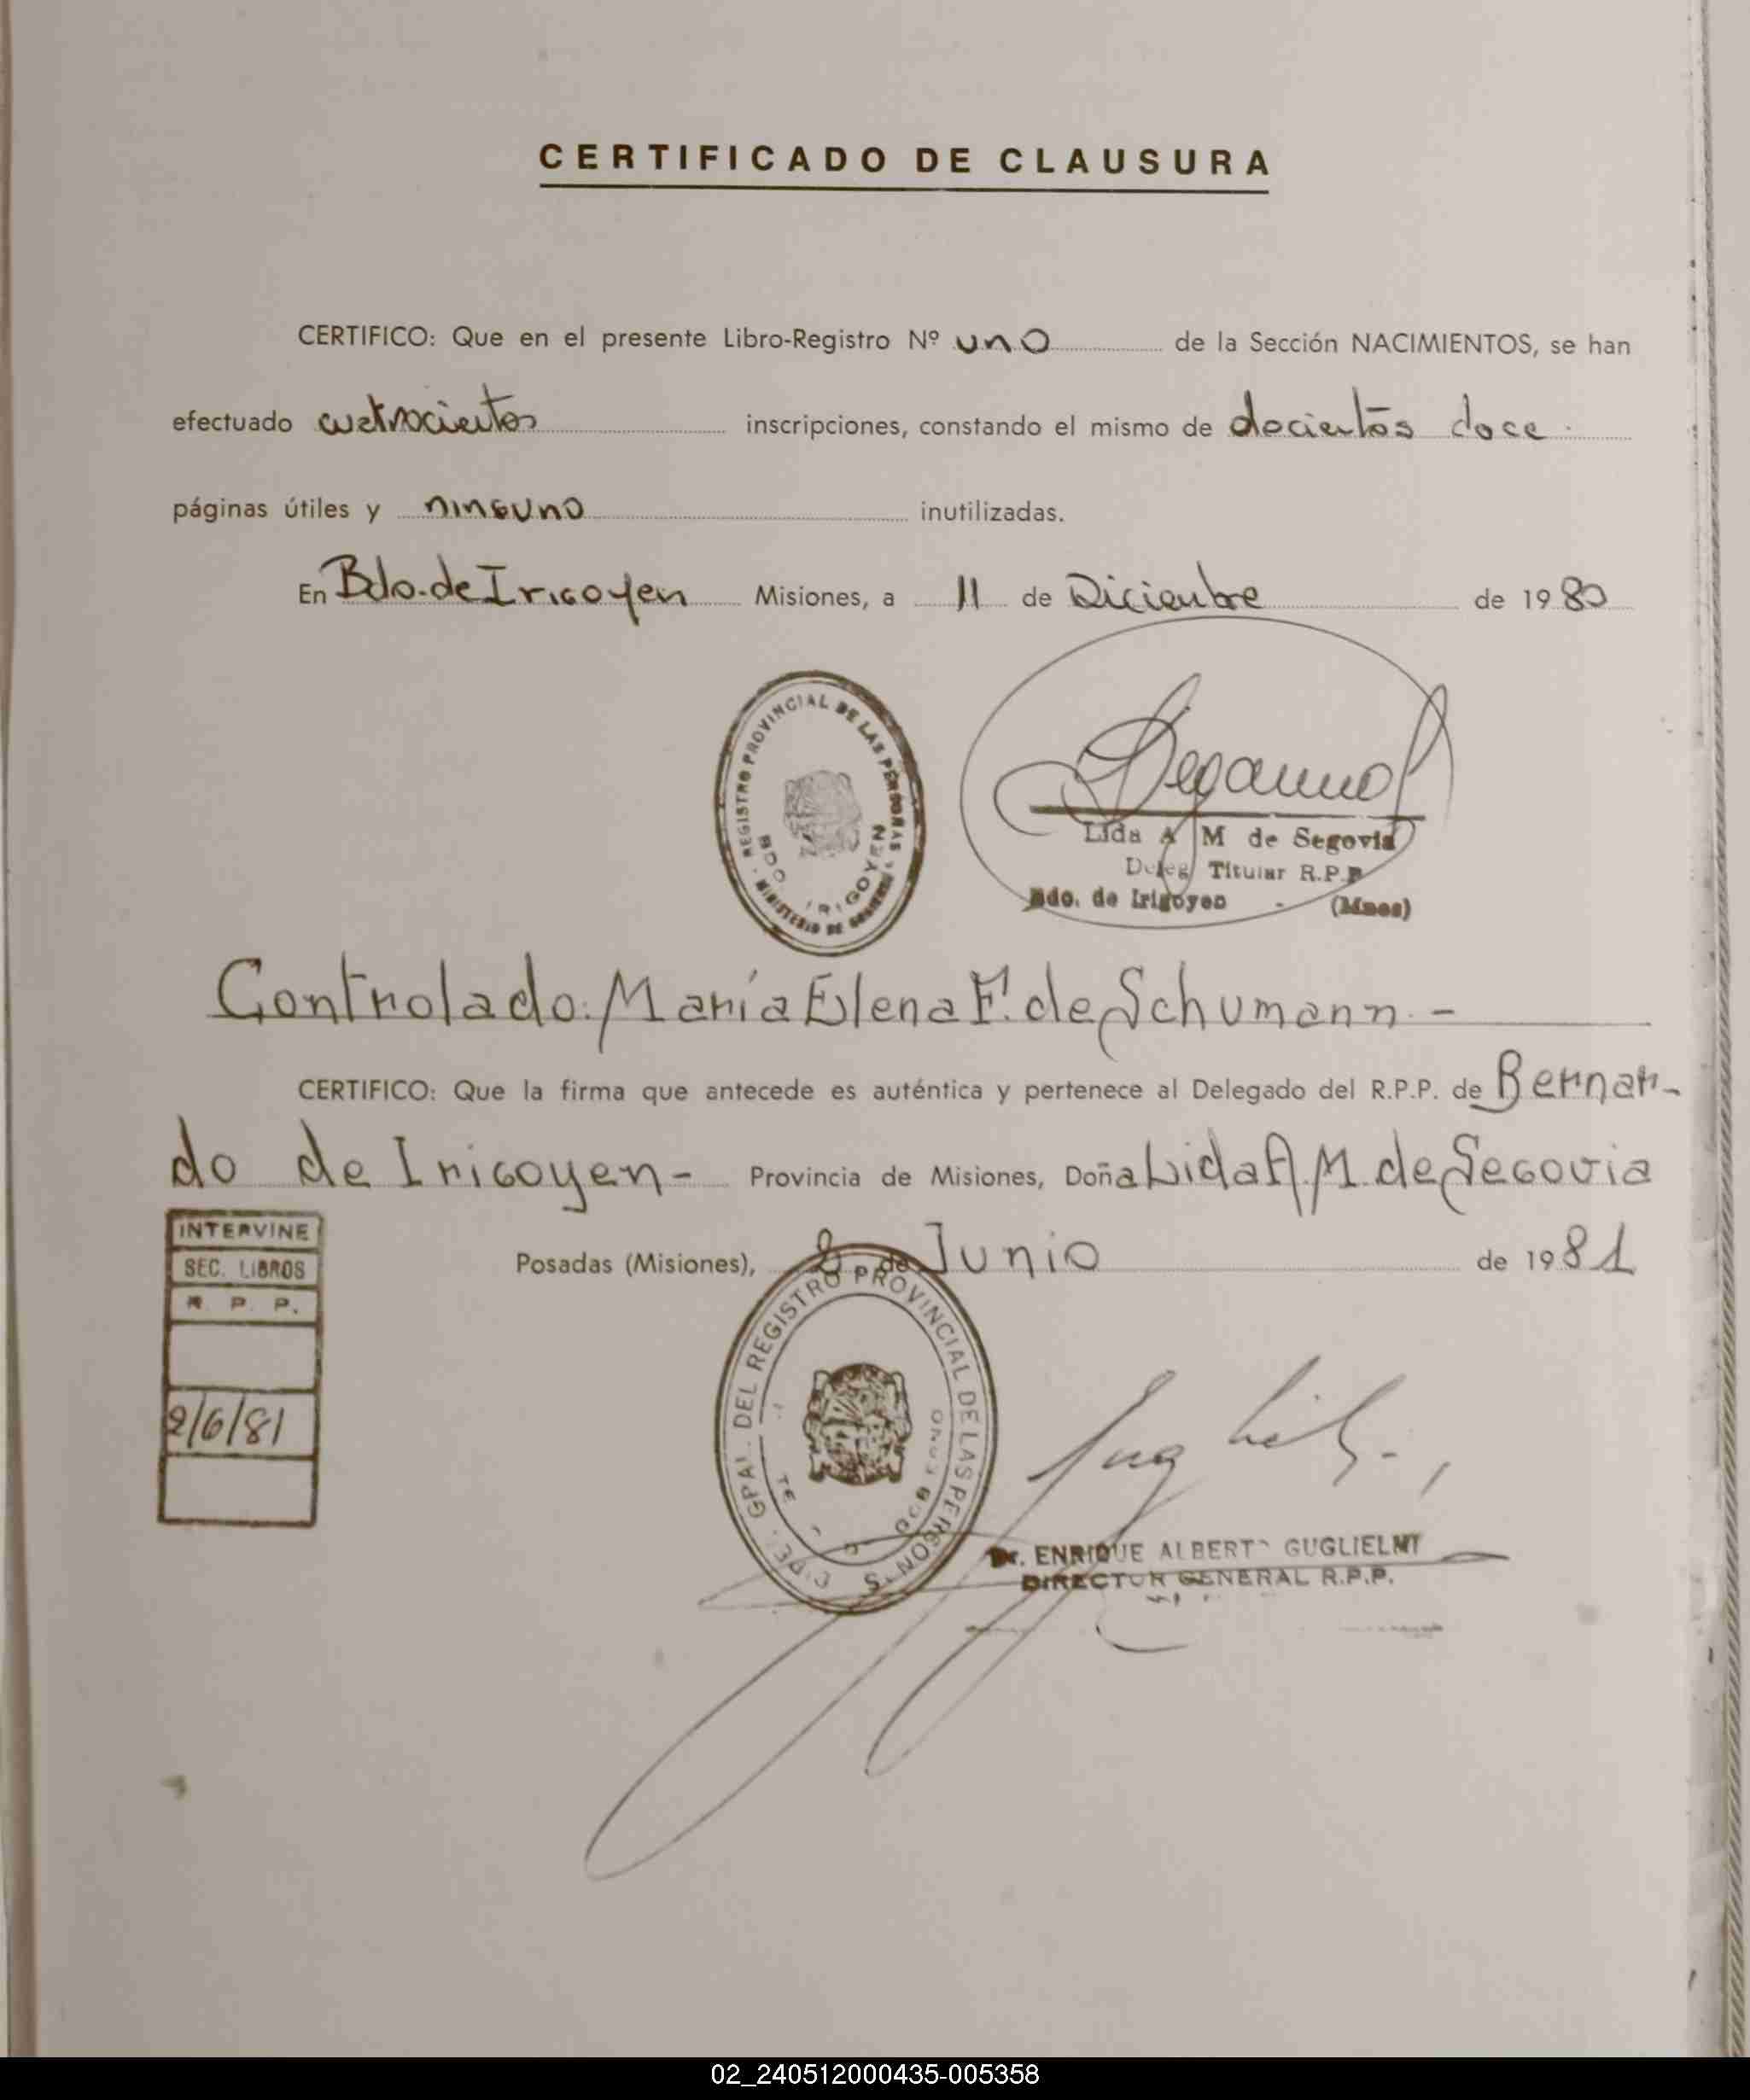 CERTIFICADO DE CLAUSURA
CERTIFICO: Que en el presente Libro-Registro Nº uno de la Sección NACIMIENTOS, se han
efectuado cuatrocientos inscripciones, constando el mismo de docientos doce
páginas útiles y ninguno inutilizadas.
En Bdo. de Irigoyen Misiones, a 11 de Diciembre de 1980
REGISTRO PROVINCIAL DE LAS PERSONAS
BDO. IRIGOYEN
MINISTERIO DE GOBIERNO
Lida A M de Segovia
Deleg Titular R.P.P
Bdo. de Irigoyen - (Mnes)
Controlado: María Elena F. de Schumann -
CERTIFICO: Que la firma que antecede es auténtica y pertenece al Delegado del R.P.P. de Bernar-
do de Irigoyen - Provincia de Misiones, Doña Lida A. M. de Segovia
Posadas (Misiones), 2 de Junio de 1981
INTERVINE
SEC. LIBROS
R. P. P.
2/6/81
GRAL. DEL REGISTRO PROVINCIAL DE LAS PERSONAS
Dr. ENRIQUE ALBERTO GUGLIELMI
DIRECTOR GENERAL R.P.P.
02_240512000435-005358